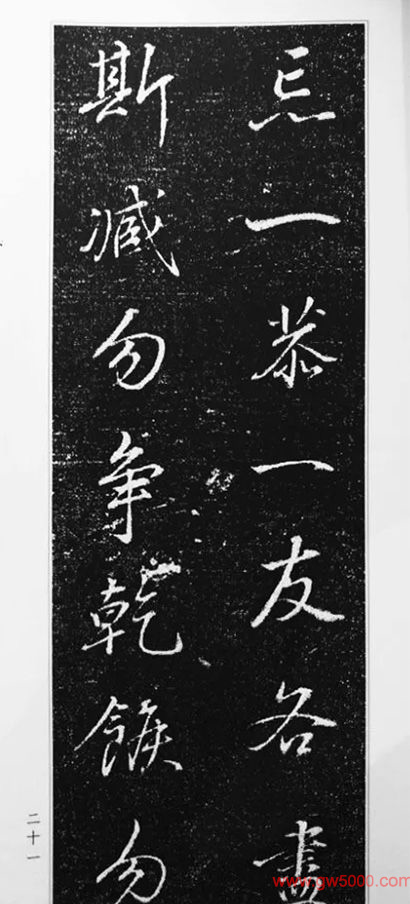 忘一恭一友各盡
斯臧勿争乾餱勿
二十一
www.gw5000.com